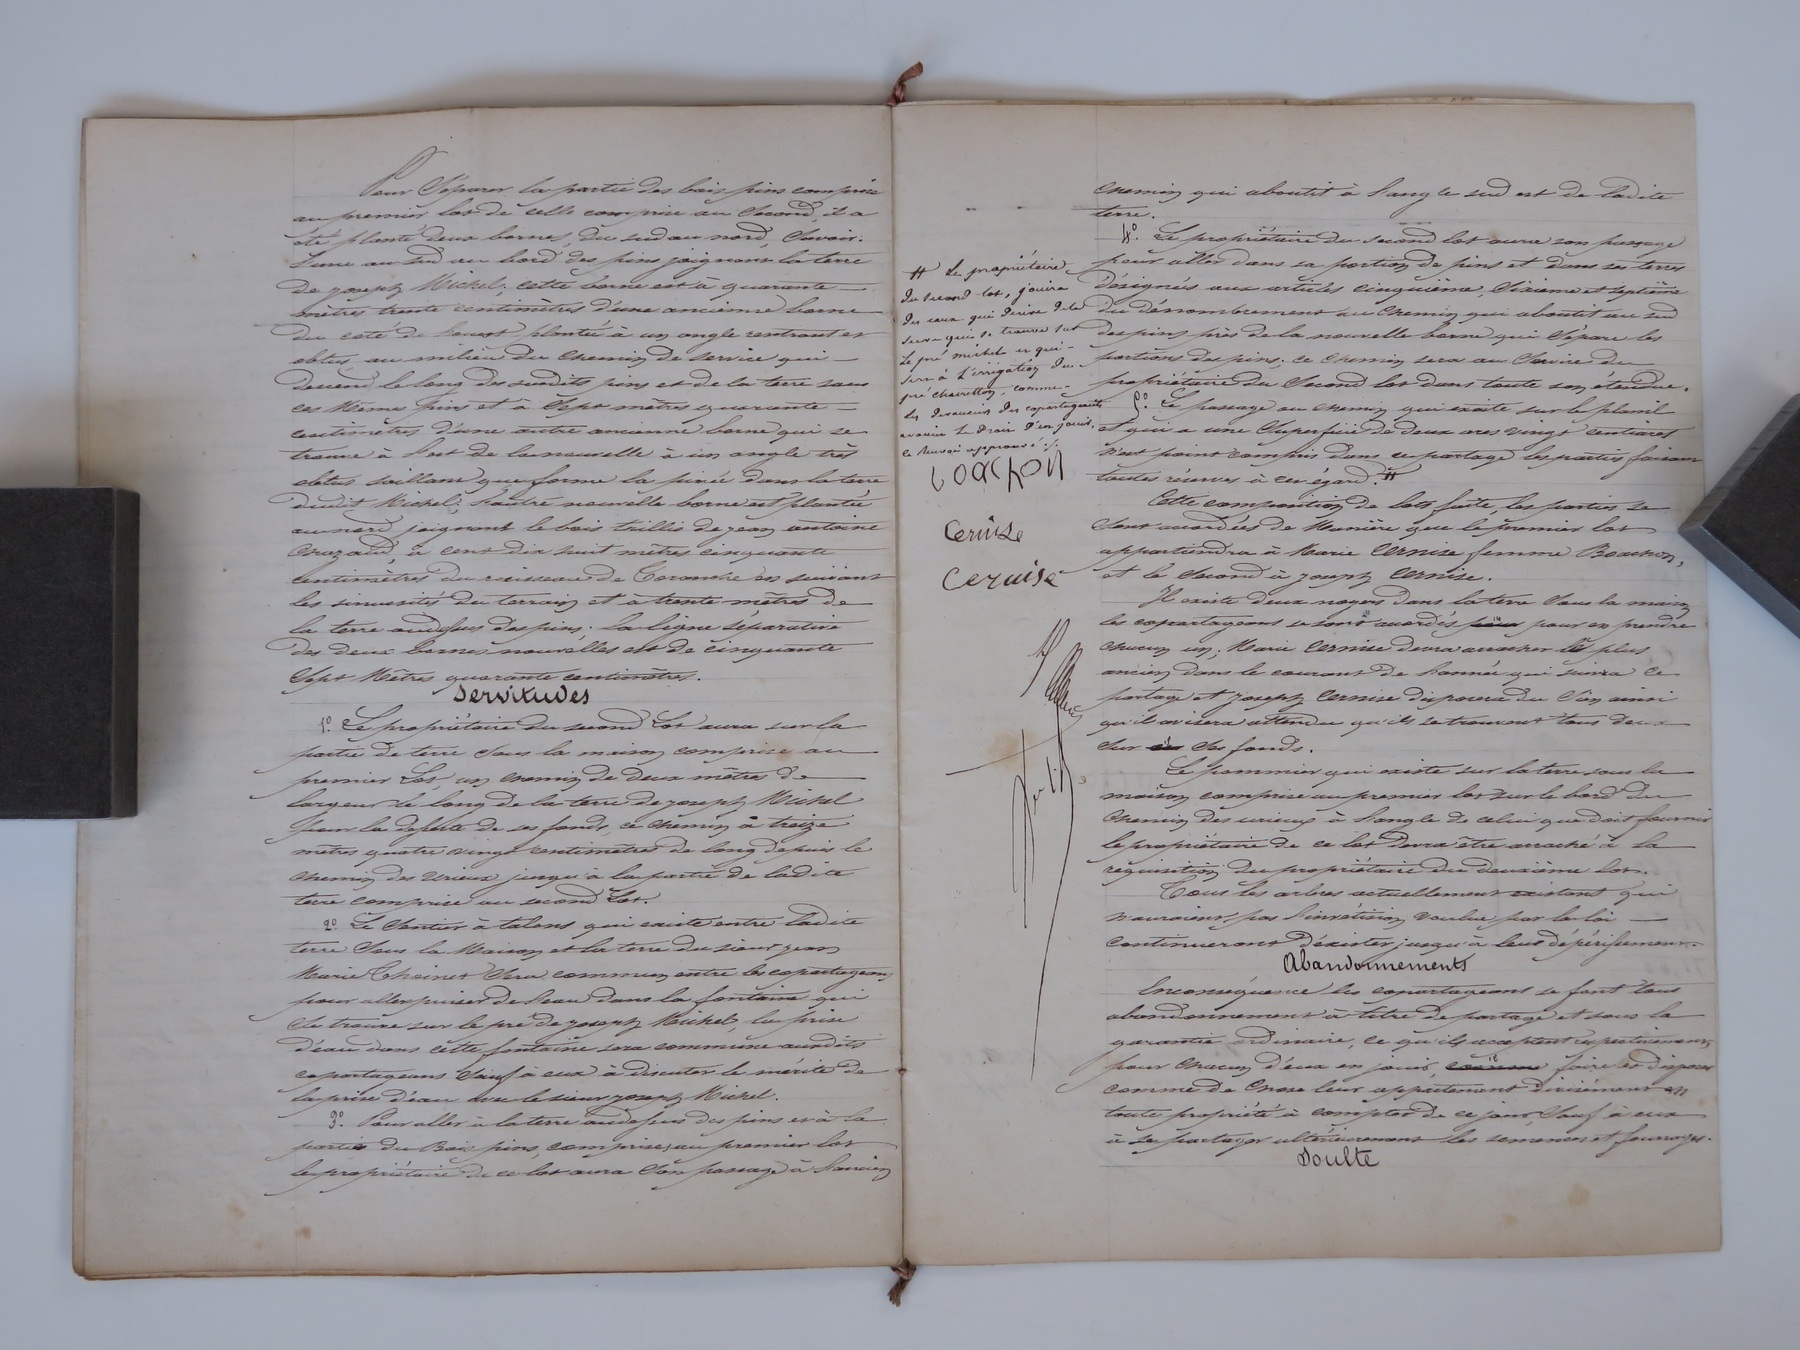 Pour Séparer la partie des bois pins comprise
au premier lot de celle comprise au Second, il a
été planté deux bornes, du sud au nord, Savoir:
L'une au sud au bord des pins joignant la terre
de joseph Michel; cette borne est à quarante
mètres trente centimètres d'une ancienne borne
du coté de louest plantée à un angle rentrant et
obtus, au milieu du chemin de service qui
descend le long des susdits pins et de la terre sous
ces mêmes pins et à Sept mètres quarante
centimètres d'une autre ancienne borne qui se
trouve à l'est de la nouvelle à un angle très
obtus saillant que forme la pinée dans la terre
dudit Michel; l'autre nouvelle borne est plantée
au nord, joignant le bois taillis de jean antoine
Chazaud, à cent dix huit mètres cinquante
centimètres du ruisseau de en suivant
les sinuosités du terrain et à trente mètres de
la terre audessus des pins. la ligne séparative
des deux bornes nouvelles est de cinquante
Sept Mètres quarante centimètres.
Servitudes
1.° Le propriétaire du second Lot aura sur la
partie de terre sous la maison comprise au
premier Lot, un chemin de deux mètres de
largeur le long de la terre de joseph Michel
pour la deserte de ses fonds, ce chemin a treize
mètres quatre vingt centimètres de long depuis le
chemin des vrieux jusqu'à la partie de ladite
terre comprise au second Lot.
2.° Le Sentier à talons qui existe entre ladite
terre Sous la Maison et la terre du sieur jean
Marie Sera commun entre les copartageans
pour aller puiser de l'eau dans la fontaine qui
se trouve sur le pré de joseph Michel, la prise
d'eau dans cette fontaine sera commune auxdits
copartageans Sauf à eux à discuter le mérite de
la prise d'eau avec le sieur joseph Michel.
3.° Pour aller à la terre audessus des pins et à la
partie du Bois pins, comprises au premier lot
le propriétaire de ce lot aura Son passage à l'ancien
chemin qui aboutit à l'angle sud est de ladite
terre.
4.° Le propriétaire du second lot aura son passage
pour aller dans sa portion de pins et dans ses terres
désignées aux articles cinquième, Sixième et septième
du dénombrement au chemin qui aboutit au sud
des pins près de la nouvelle borne qui Sépare les
portions des pins; ce chemin sera au Service du
propriétaire du Second lot dans toute son étendue.
5.° Le passage au chemin qui existe sur le
et qui a une Superficie de deux ares vingt centiares
n'est point compris dans ce partage les parties faisant
toutes réserves à cet égard. #
# Le propriétaire
du second lot, jouira
des eaux qui dérive de la
serve qui se trouve sur
le pré michel et qui
sert à l'irrigation du
pré comme
les devanciers des copartageants
avaient le droit d'en jouir.
ce Renvoi approuvé /.
Boachon
Cernise
Cernise
Cette composition de lots faite, les parties se
Sont accordées de Manière que le premier lot
appartiendra à Marie Cernise femme Boachon,
et le Second à joseph Cernise.
Il existe deux noyers dans la terre Sous la maison
les copartageans se sont accordés pour en prendre
chacun un; Marie Cernise devra arracher le plus
ancien dans le courant de l'année qui suivra ce
partage et joseph Cernise disposera du Sien ainsi
qu'il avisera attendu qu'ils se trouvent tous deux
Sur ses fonds.
Le pommier qui existe sur la terre sous la
maison comprise au premier lot sur le bord du
chemin des vrieux à l'angle de celui que doit fournir
le propriétaire de ce lot devra être arraché à la
réquisition du propriétaire du deuxième lot.
Tous les arbres actuellement existant qui
n'auroient pas voulue par la loi
continueront d'exister jusqu'à leur dépérissement.
Abandonnements
En conséquence les copartageans se font tous
abandonnement à titre de partage et sous la
garantie ordinaire, ce qu'ils acceptent respectivement,
pour chacun d'eux en jouir, faire et disposer
comme de chose leur appartenant divisément en
toute propriété à compter de ce jour, Sauf à eux
à se partager ultérieurement les semences et fourrages.
Soulte